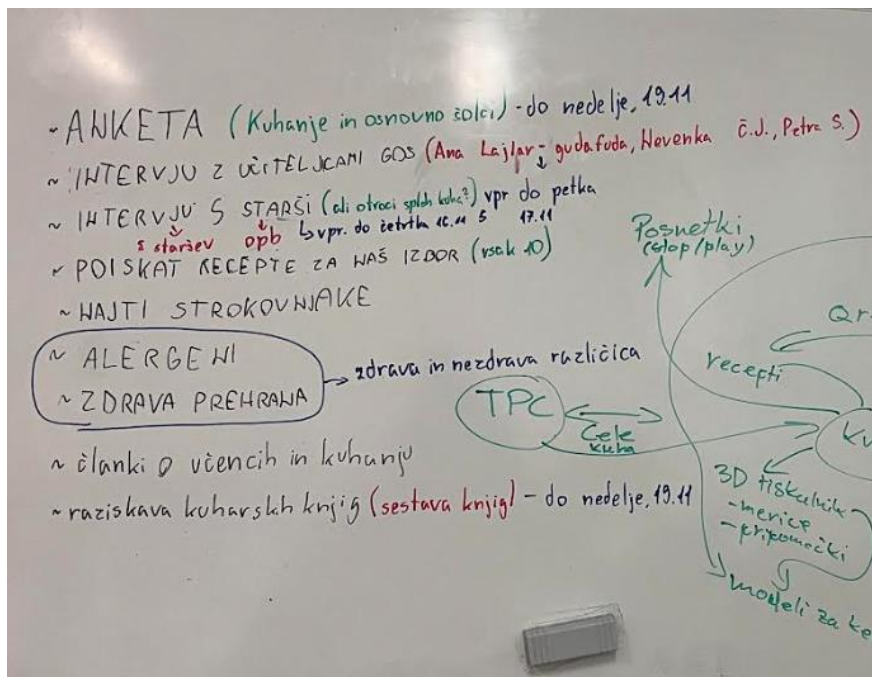 ~ ANKETA (Kuhanje in osnovno šolci) - do nedelje, 19.11
~ INTERVJU Z UČITELJICAMI GOS (Ana Lajlar - gudafuda, Nevenka Č.J., Petra S.)
~ INTERVJU S STARŠI (ali otroci sploh kuha?) vpr do petka 17.11
5 staršev opb ↳ vpr. do četrtka 16.11
~ POISKAT RECEPTE ZA NAŠ IZBOR (vsak 10)
~ NAJTI STROKOVNJAKE
~ ALERGENI
~ ZDRAVA PREHRANA
→ zdrava in nezdrava različica
~ članki o učencih in kuhanju
~ raziskava kuharskih knjig (sestava knjig) - do nedelje, 19.11
Posnetki
(stop/play)
Qr
recepti
TPC
Cele
kuha
Ku
3D tiskalnik
- merice
- pripomočki
modeli za ke